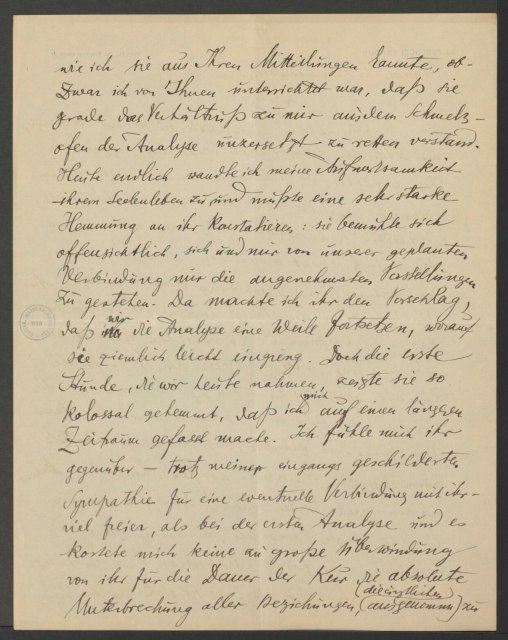 wie ich sie aus Ihren Mitteilungen kannte, ob-
zwar ich von Ihnen unterrichtet war, daß sie
gerade das Verhältniß zu mir aus dem Schmelz-
ofen der Analyse unzersetzt zu retten verstand.
Heute endlich wandte ich meine Aufmerksamkeit
ihrem Seelenleben zu und mußte eine sehr starke
Hemmung an ihr konstatieren: sie bemühte sich
offensichtlich, sich und mir von unserer geplanten
Verbindung nur die angenehmsten Vorstellungen
zu gestehen. Da machte ich ihr den Vorschlag,
daß wir die Analyse eine Weile fortsetzen, worauf
sie ziemlich leicht einging. Doch die erste
Stunde, die wir heute nahmen, zeigte sie so
kolossal gehemmt, daß ich mich auf einen längeren
Zeitraum gefasst mache. Ich fühle mich ihr
gegenüber – trotz meiner eingangs geschilderten
Sympathie für eine eventuelle Verbindung mit ihr –
viel freier, als bei der ersten Analyse und es
kostete mich keine zu große Überwindung
von ihr für die Dauer der Kur die absolute
Unterbrechung aller Beziehungen, (die ärztlichen ausgenommen) zu